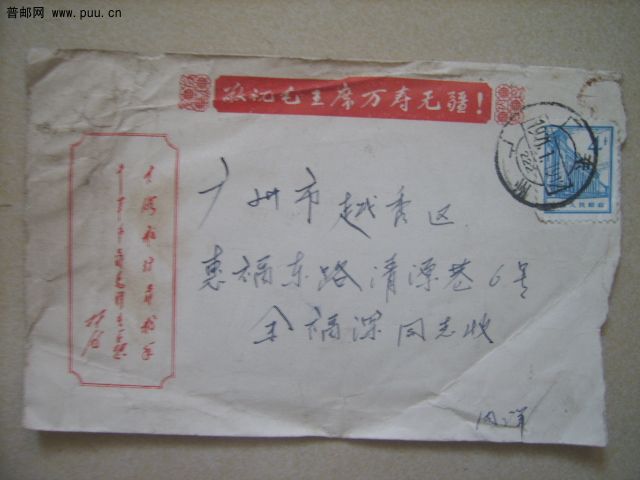 普邮网
www.puu.cn
敬祝毛主席万寿无疆!
广州市越秀区
惠福东路清源巷6号
余福深同志收
内详
大海航行靠舵手
干革命靠毛泽东思想
林彪
人民邮政